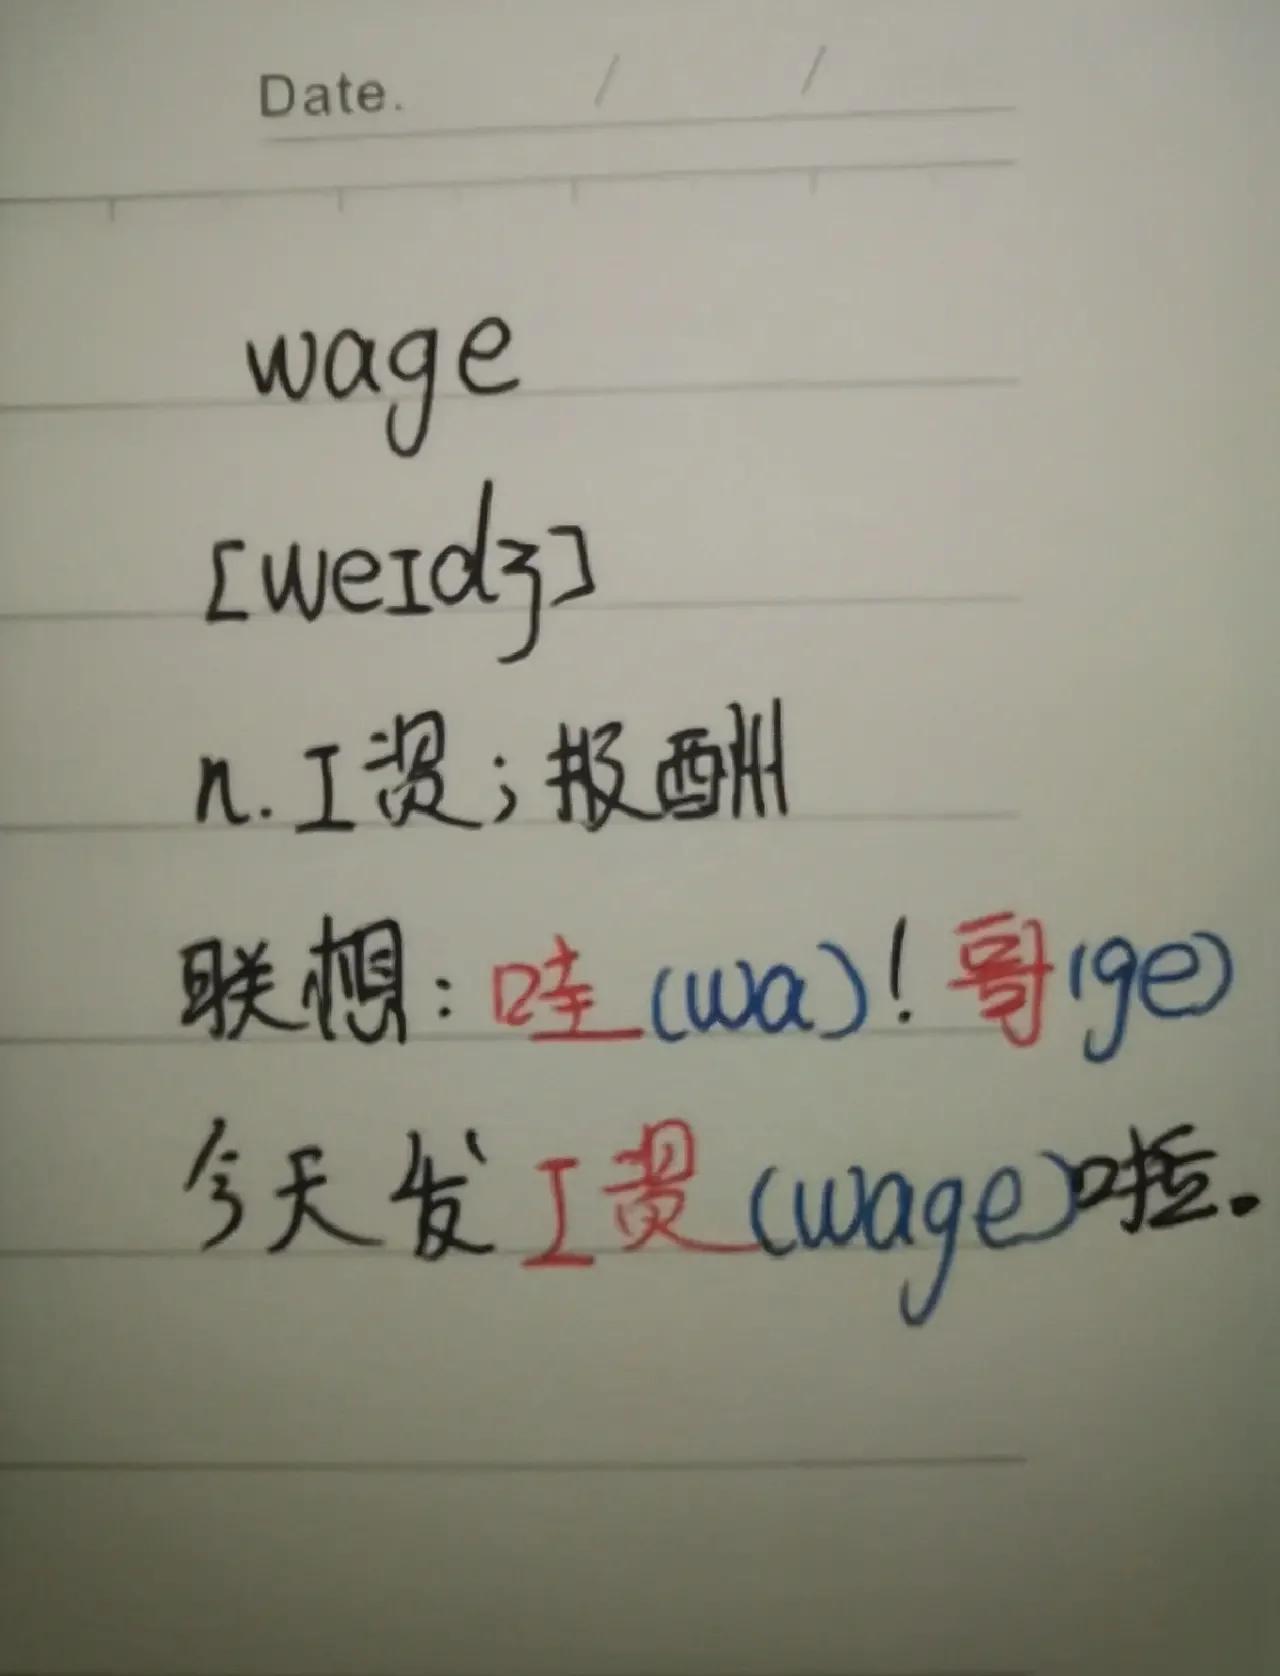 Date. / /
wage
[weɪdʒ]
n.工资；报酬
联想：哇(wa)！哥(ge)
今天发工资(wage)啦.